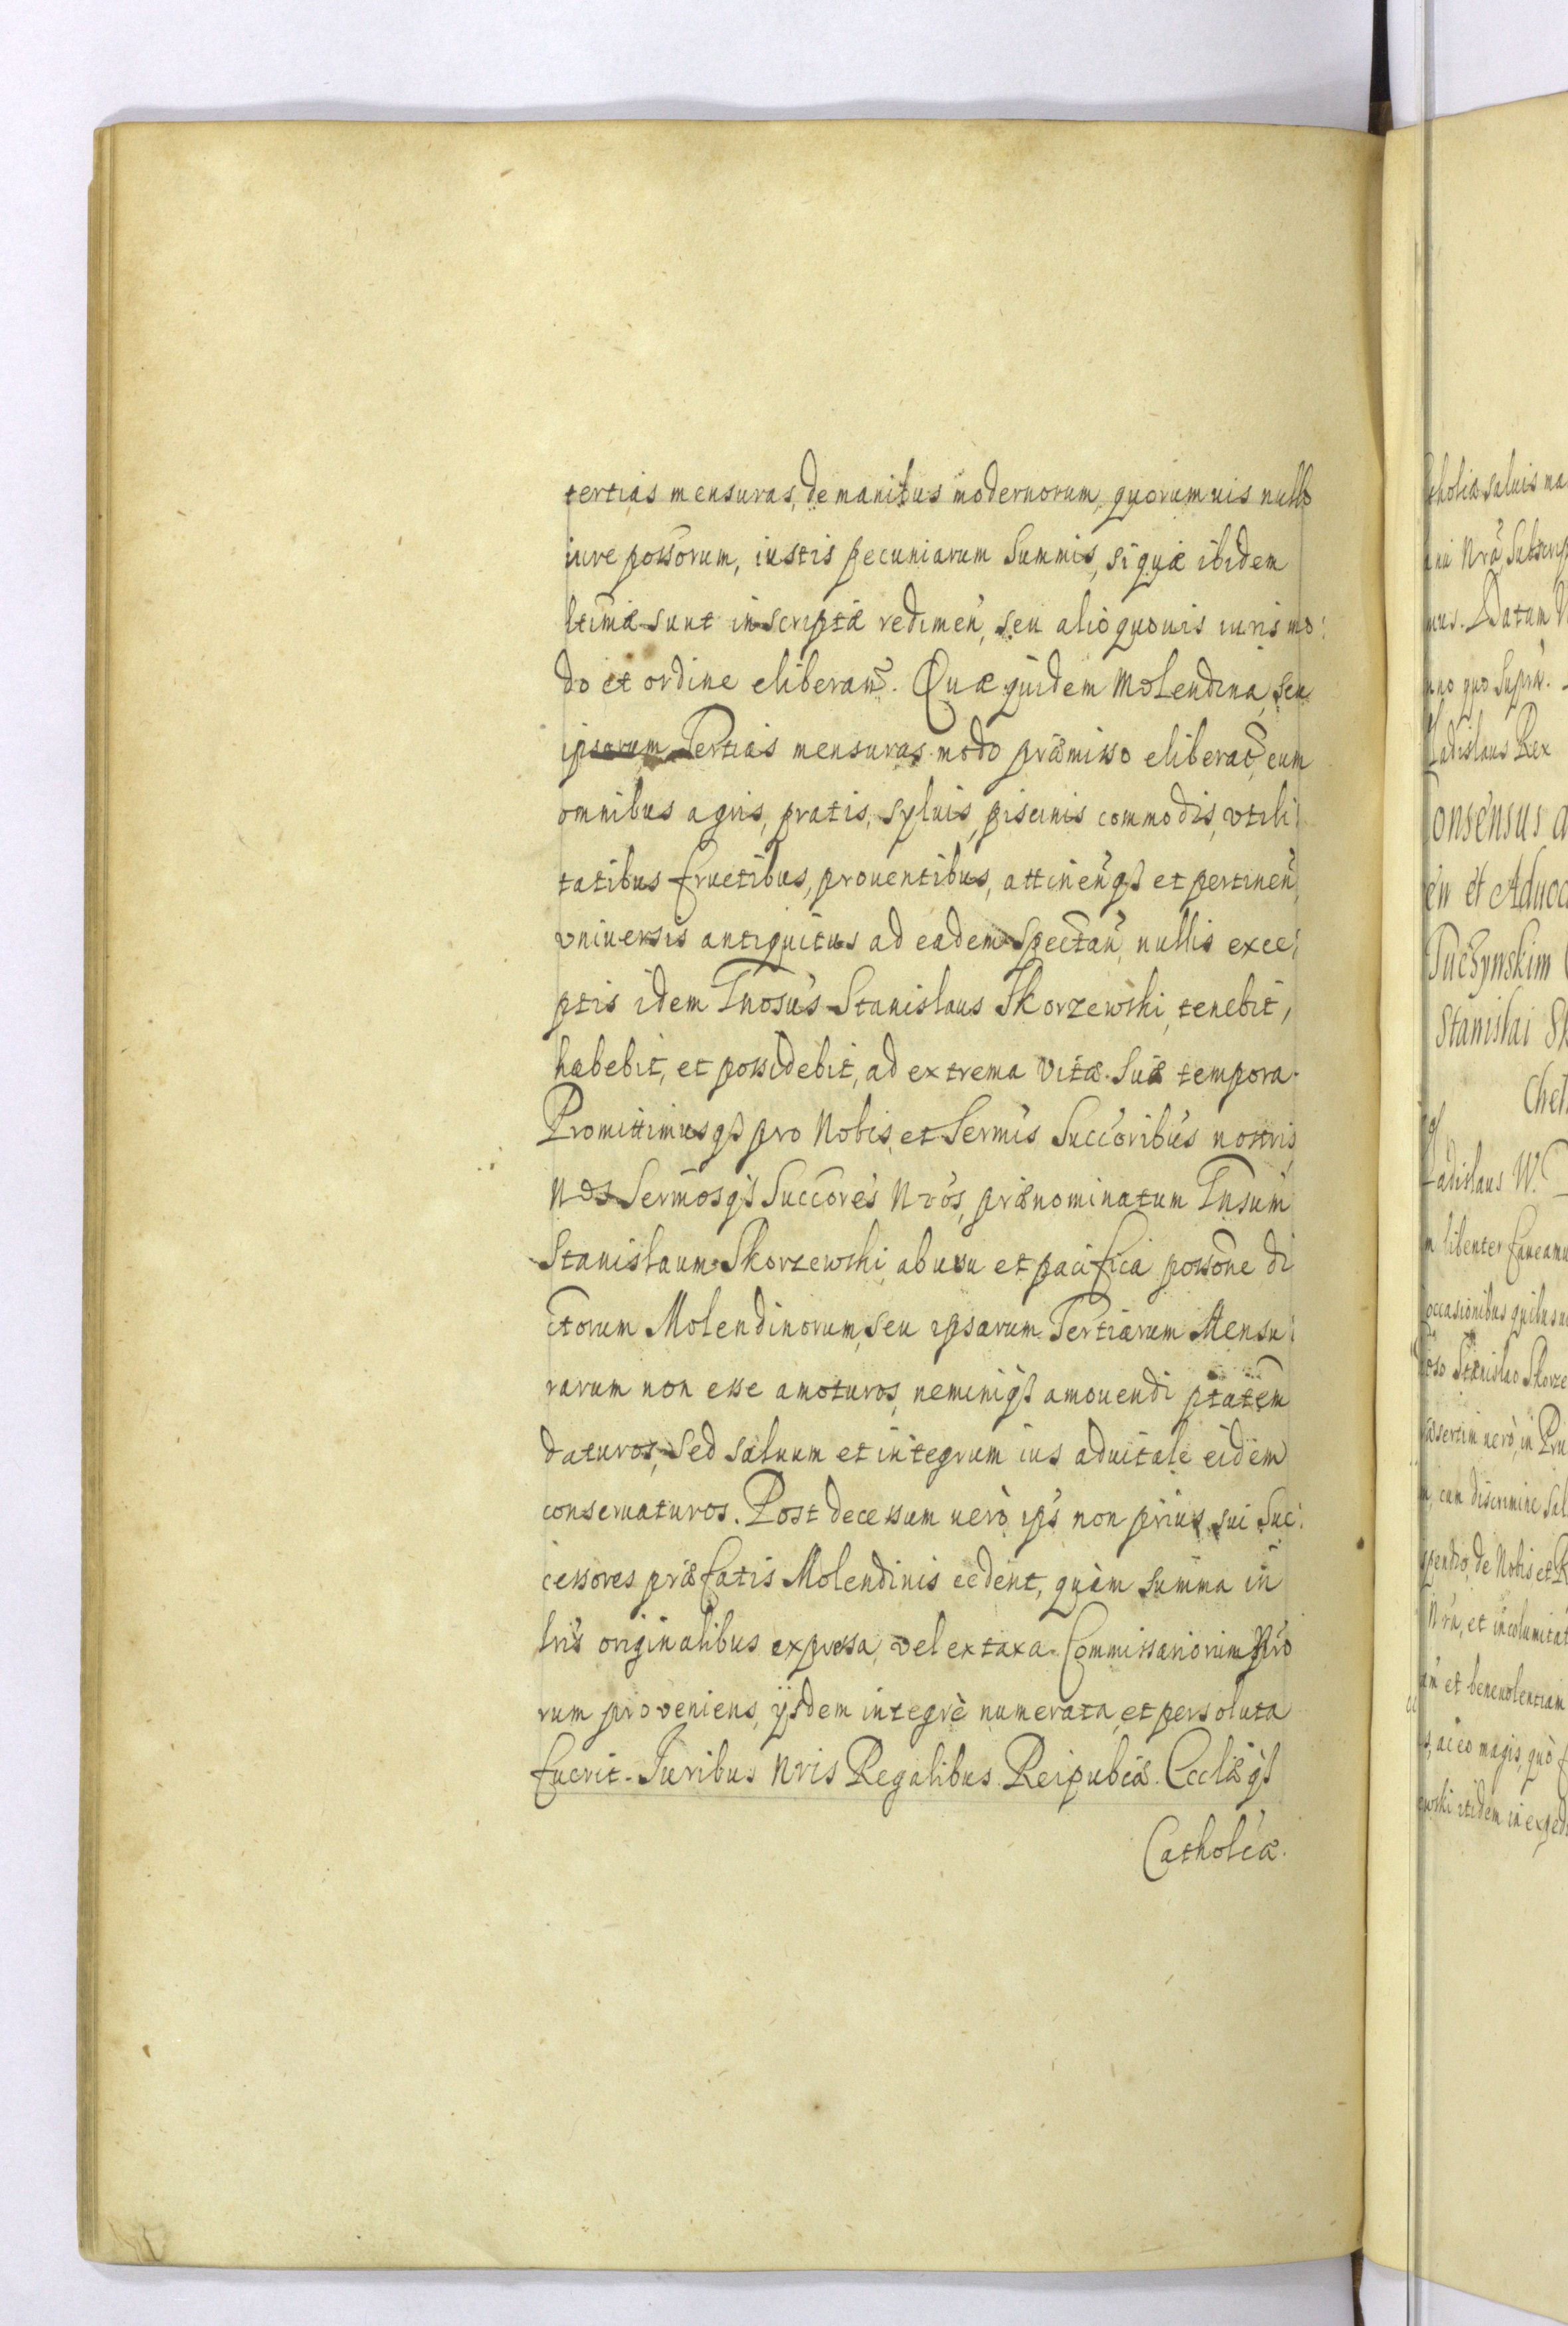 tertias mensuras, de manibus modernorum, quorumuis nullo
iure possorum, iustis pecuniarum summis, si quæ ibidem
ltimæ sunt inscriptæ redimen, seu alio quouis iuris mo:
do et ordine eliberan. Quæ quidem Molendina, seu
ipsarum Tertias mensuras modo præmisso eliberat, cum
omnibus agris, pratis, syluis, piscinis commodis, vtili:
tatibus fructibus, prouentibus, attinenq3 et pertinen
vniuersis antiquitus ad eadem spectan, nullis exce:
ptis idem Gnosus Stanislaus Skorzewski, tenebit,
habebit, et possidebit, ad extrema vitæ suæ tempora.
Promittimusq3 pro Nobis, et Sermis Succoribus nostris,
Nos Sermosq3 Succores Nros, prænominatum Gnsum
Stanislaum Skorzewski, ab usu et pacifica possone di
ctorum Molendinorum, seu ipsarum Tertiarum Mensu:
rarum non esse amoturos, neminiq3 amouendi ptatem
daturos, sed saluum et integrum ius aduitale eidem
conseruaturos. Post decessum uerò ips non prius sui Suc:
cessores præfatis Molendinis cedent, quàm summa in
lris originalibus expressa, vel ex taxa Commissariorum Nro
rum proveniens, ijsdem integrè numerata, et persoluta
fuerit. Iuribus Nris Regalibus Reipubcæ Ecclæq3
Catholcæ.
Stanislai
Datum
ladislaus Rex
onsensus
en et Aduoca
Tuchynskim
adislaus W.
m libenter faueamu
occasionibus quibus
Stanislao Skorze
uerò, in Pru
cum discrimine
de Nobis et R
Nra, et incolumitat
et beneuolentiam
ac eo magis, quò
itidem in exped